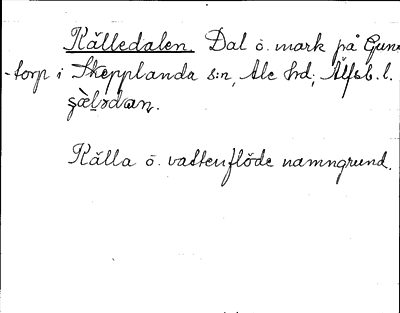 Källedalen. Dal o. mark på Guns
-torp i Skepplanda s:n, Ale hd; Älfsb. l.

Källa o. vattenflöde namngrund.